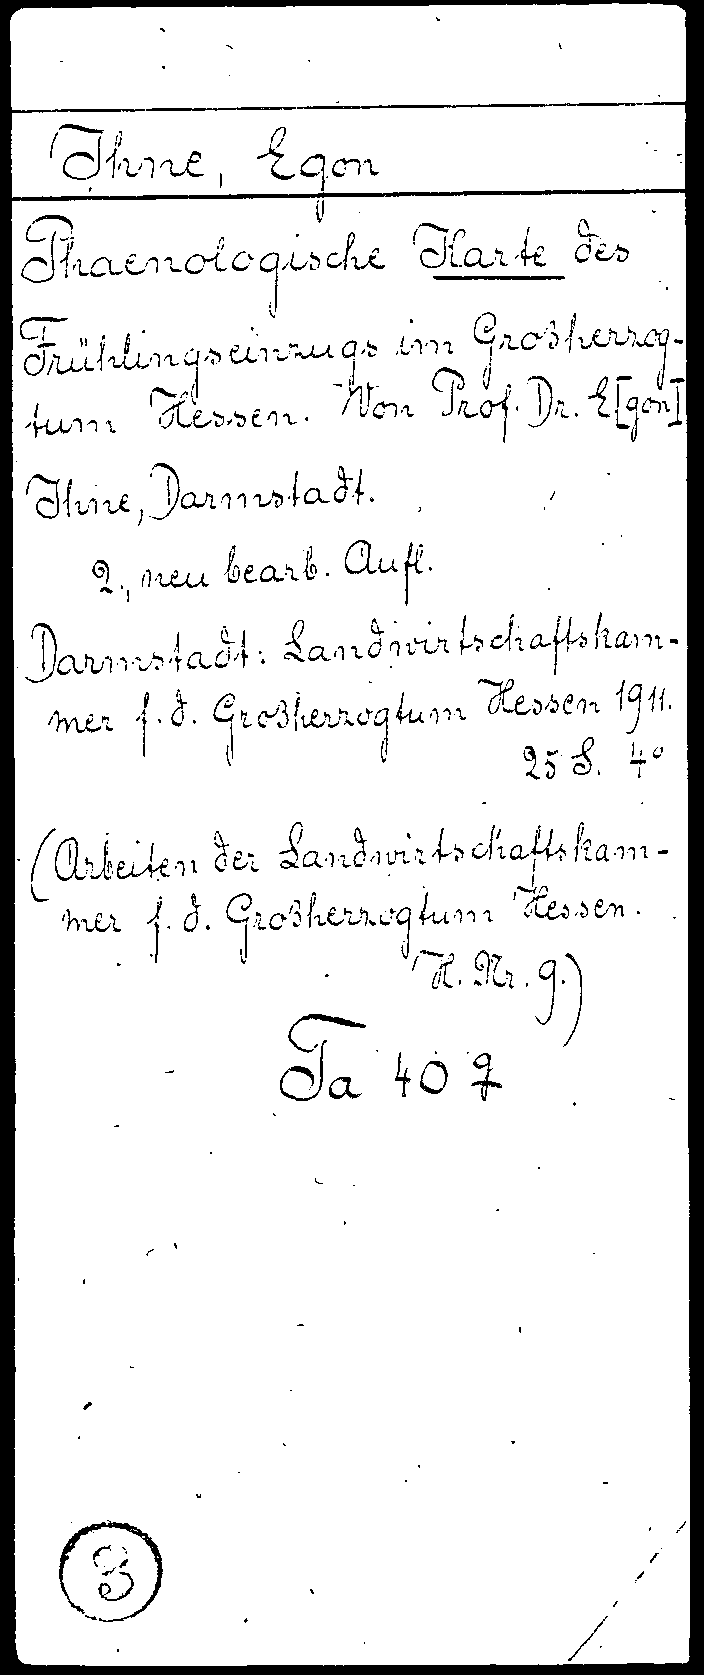 Ihne, Egon
Phaenologische Karte des
Frühlingseinzugs im Großherzog-
tum Hessen. Von Prof. Dr. E[gon]
Ihne, Darmstadt.
2., neu bearb. Aufl.
Darmstadt: Landwirtschaftskam-
mer f. d. Großherzogtum Hessen 1911.
25 S. 4°
(Arbeiten der Landwirtschaftskam-
mer f. d. Großherzogtum Hessen.
H. Nr. 9.)
Ta 40
3